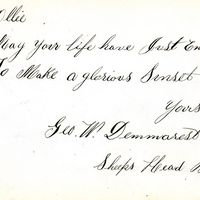 Ollie
May Your life have Just En
To Make a glorious Sunset
Yours
Geo. W. Demmarest
Sheeps Head